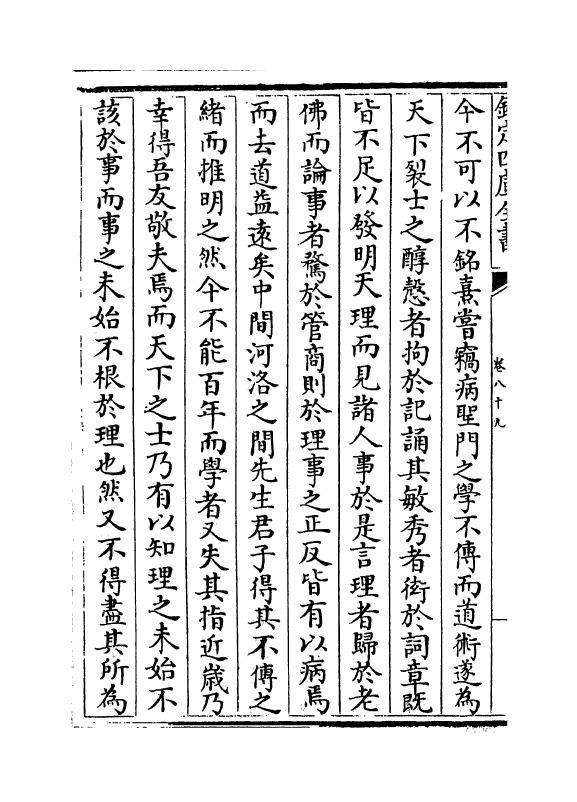 欽定四庫全書
卷八十九
今不可以不銘熹嘗竊病聖門之學不傳而道術遂為
天下裂士之醇慤者拘於記誦其敏秀者衒於詞章既
皆不足以發明天理而見諸人事於是言理者歸於老
佛而論事者騖於管商則於理事之正反皆有以病焉
而去道益遠矣中間河洛之間先生君子得其不傳之
緒而推明之然今不能百年而學者又失其指近歲乃
幸得吾友敬夫焉而天下之士乃有以知理之未始不
該於事而事之未始不根於理也然又不得盡其所為